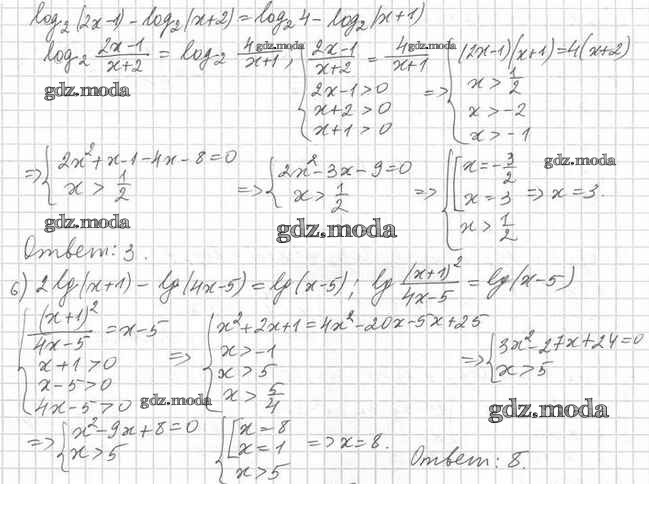 log₂(2x-1) - log₂(x+2) = log₂4 - log₂(x+1)
log₂ (2x-1)/(x+2) = log₂ 4/(x+1); { (2x-1)/(x+2) = 4/(x+1) ; 2x-1>0 ; x+2>0 ; x+1>0 => { (2x-1)(x+1)=4(x+2) ; x > 1/2 ; x>-2 ; x>-1
gdz.moda
gdz.moda
=> { 2x²+x-1-4x-8=0 ; x > 1/2 => { 2x²-3x-9=0 ; x > 1/2 => { [ x=-3/2 ; x=3 ; x > 1/2 => x=3.
gdz.moda
gdz.moda
gdz.moda
Ответ: 3.
б) 2lg(x+1) - lg(4x-5) = lg(x-5); lg (x+1)²/(4x-5) = lg(x-5)
{ (x+1)²/(4x-5) = x-5 ; x+1>0 ; x-5>0 ; 4x-5>0 => { x²+2x+1=4x²-20x-5x+25 ; x>-1 ; x>5 ; x > 5/4 => { 3x²-27x+24=0 ; x>5
gdz.moda
gdz.moda
=> { x²-9x+8=0 ; x>5 { [ x=8 ; x=1 ; x>5 => x=8. Ответ: 8.